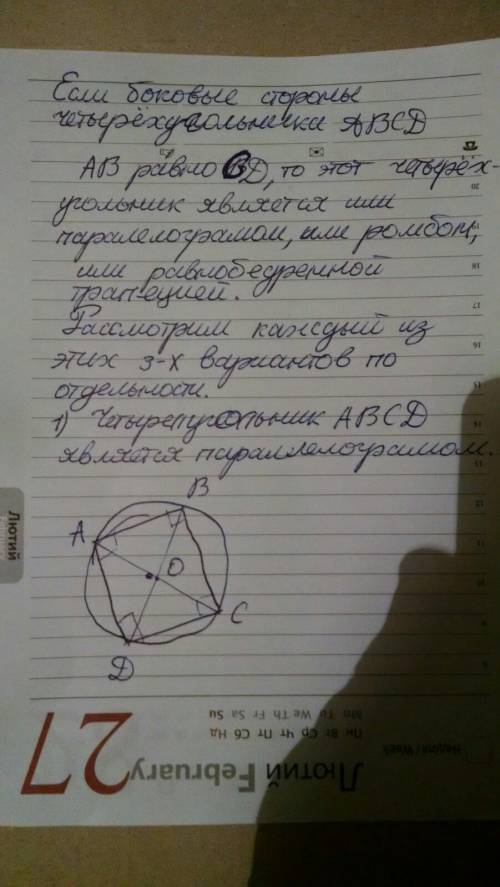 Если боковые стороны
четырёхугольника ABCD
AB равно CD, то этот четырёх-
угольник является или
паралелограмом, или ромбом,
или равнобедренной
трапецией.
Рассмотрим каждый из
этих 3-х вариантов по
отдельности.
1) Четырехугольник ABCD
является параллелограмом.
B
A
O
C
D
20
19
18
17
16
15
14
13
12
11
10
9
8
Лютий
Mo Tu We Th Fr Sa Su
Пн Вт Ср Чт Пт Сб Нд
Неділя / Week
27
Лютий February